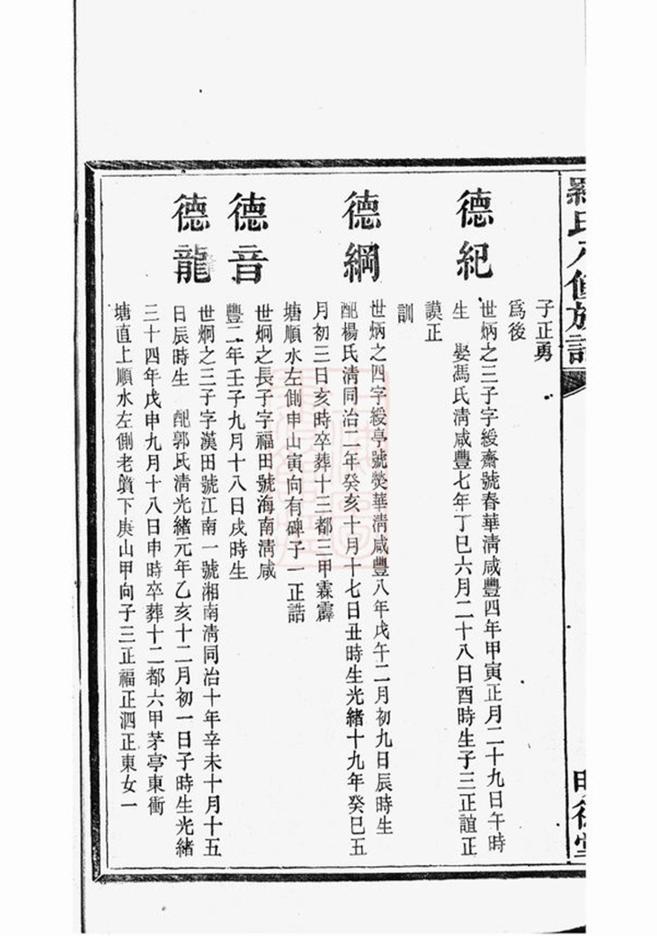 羅氏八修族譜
明德堂
子正勇
為後
德紀
世炳之三子字綬齋號春華清咸豐四年甲寅正月二十九日午時
生 娶馮氏清咸豐七年丁巳六月二十八日酉時生子三正誼正
謨正
訓
德綱
世炳之四字綬亭號熒華清咸豐八年戊午二月初九日辰時生
配楊氏清同治二年癸亥十月十七日丑時生光緒十九年癸巳五
月初三日亥時卒葬十三都三甲霖霹
塘順水左側申山寅向有碑子一正誥
德音
世炯之長子字福田號海南清咸
豐二年壬子九月十八日戌時生
德龍
世炯之三子字漢田號江南一號湘南清同治十年辛未十月十五
日辰時生 配郭氏清光緒元年乙亥十二月初一日子時生光緒
三十四年戊申九月十八日申時卒葬十二都六甲茅亭東衝
塘直上順水左側老墳下庚山甲向子三正福正泗正東女一